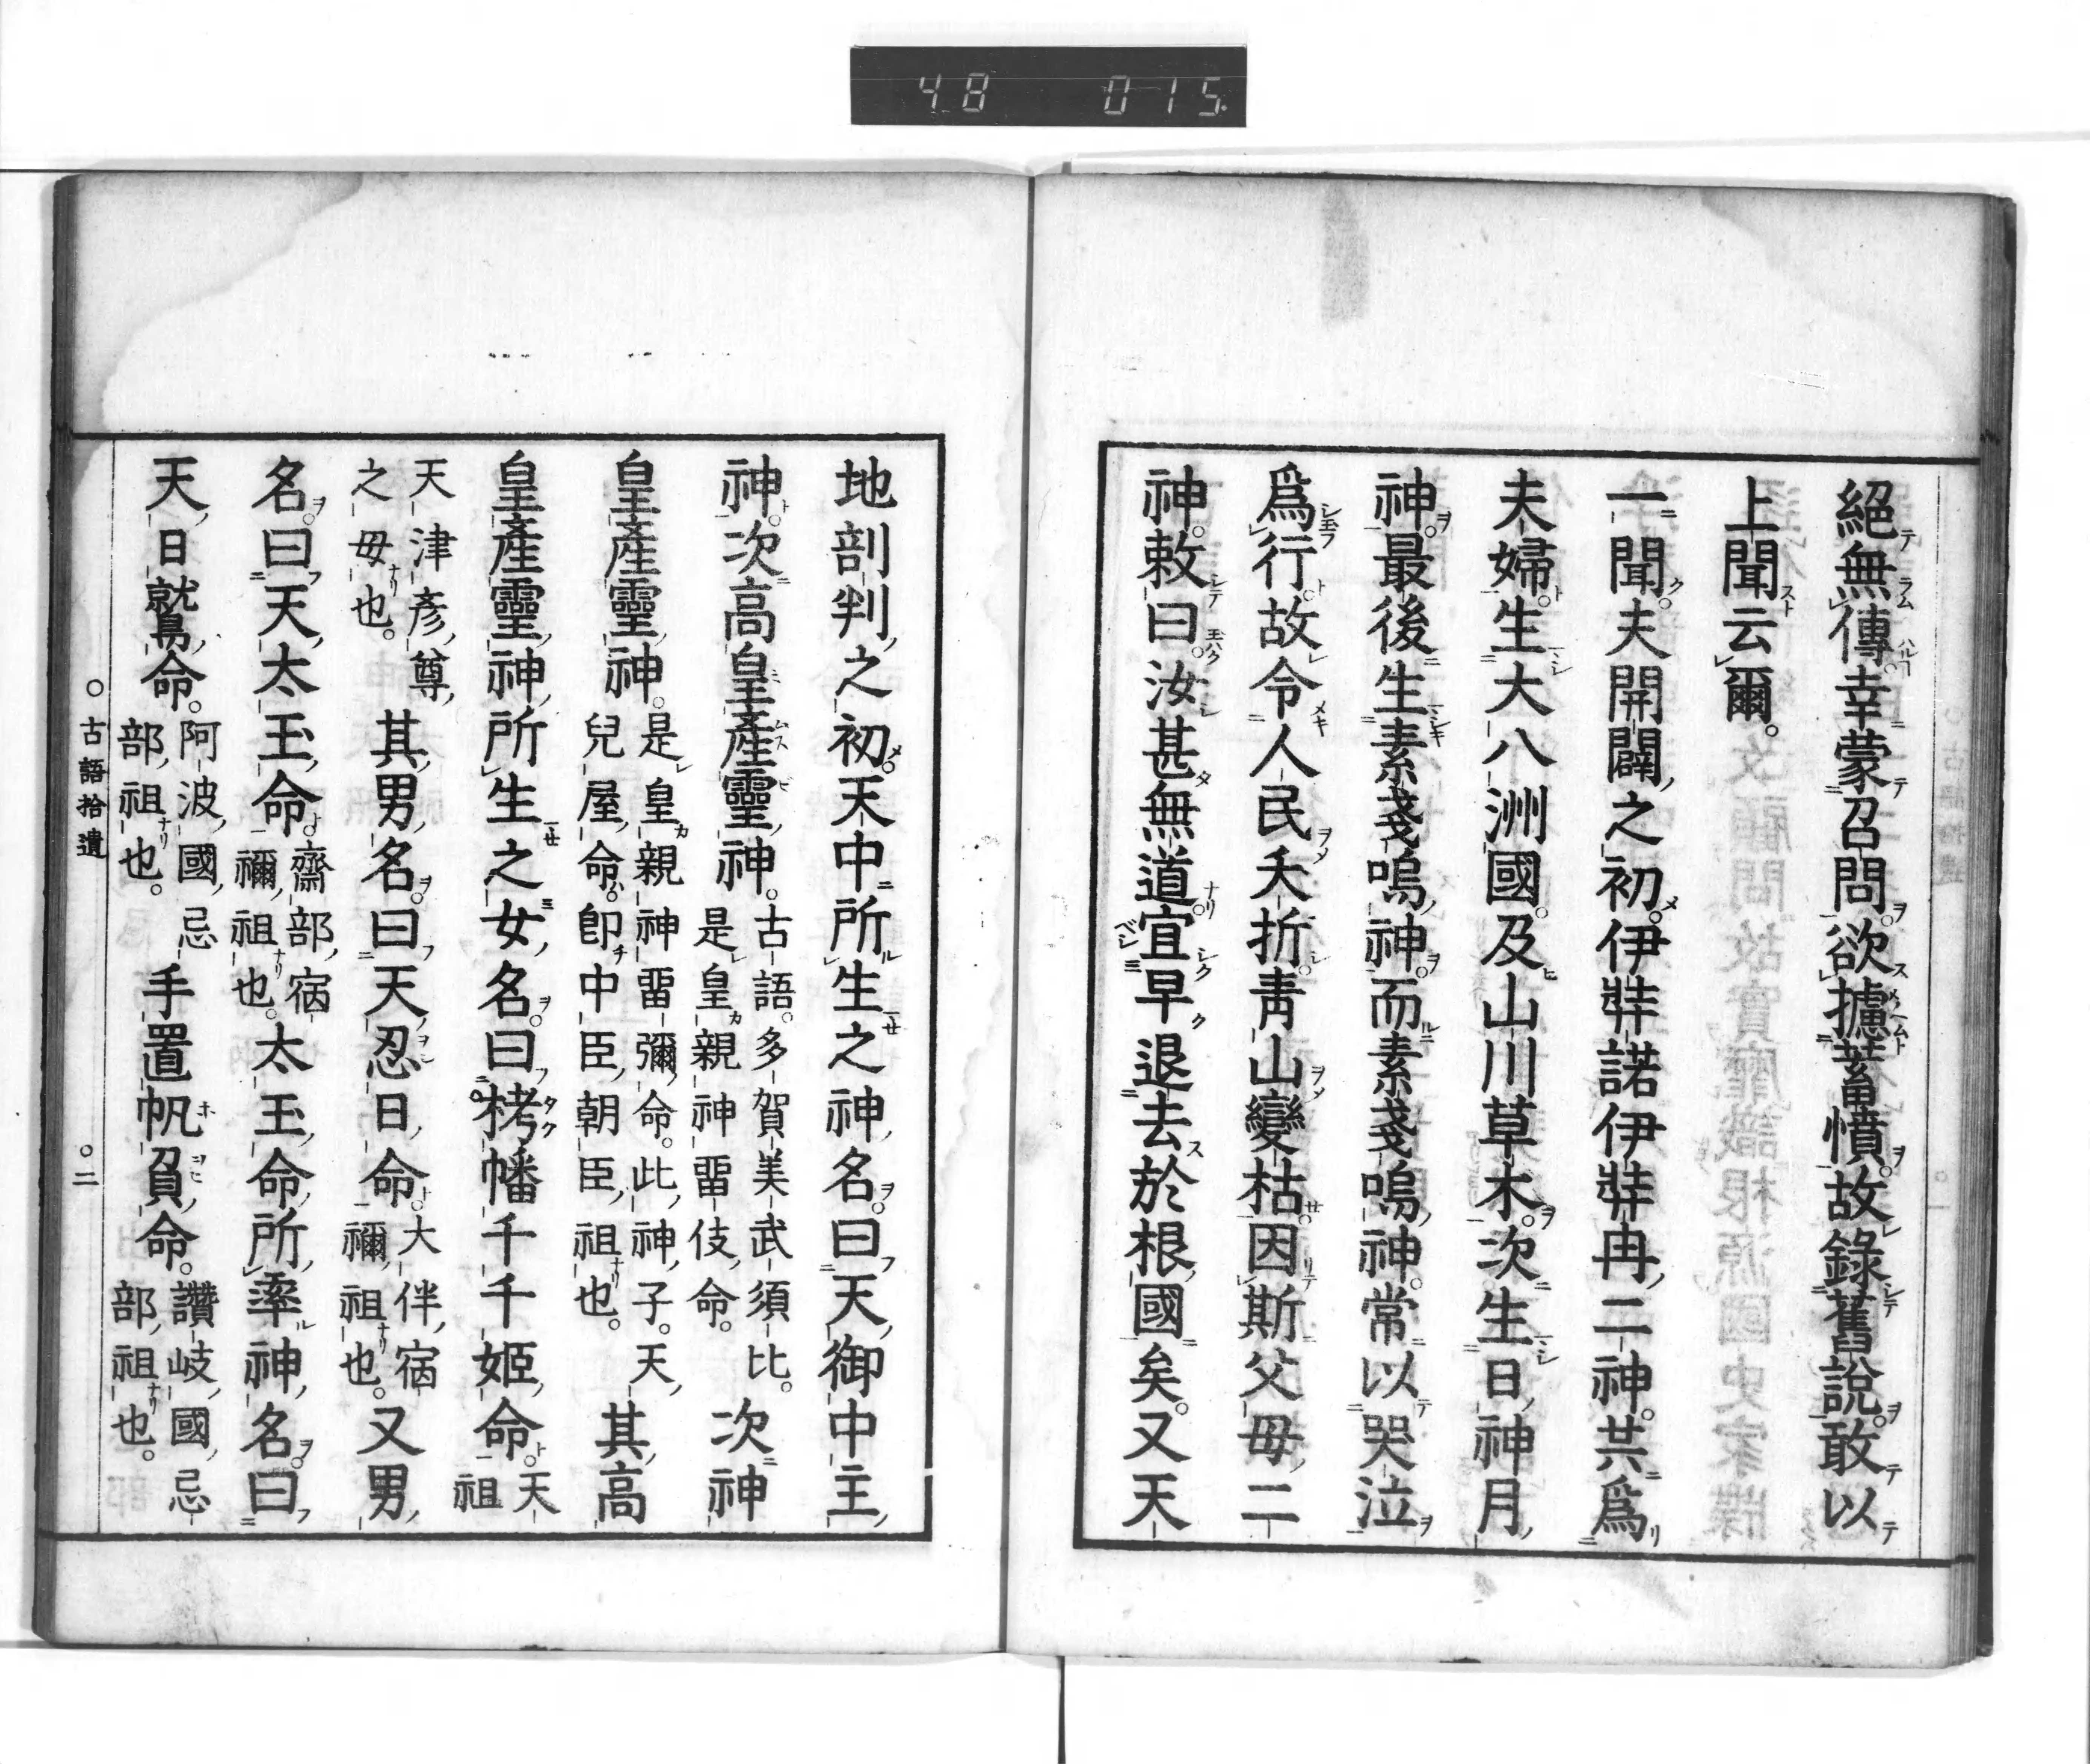 48 015
絕無傳幸蒙召問欲攄蓄憤故錄舊說敢以
上聞云爾
一聞夫開闢之初伊弉諾伊弉冉二神共爲
夫婦生大八洲國及山川草木次生日神月
神最後生素戔嗚神而素戔嗚神常以哭泣
爲行故令人民夭折靑山變枯因斯父母二
神敕曰汝甚無道宜早退去於根國矣又天
地剖判之初天中所生之神名曰天御中主
神次高皇產靈神古語多賀美武須比是皇親神畱伎命次神
皇產靈神是皇親神畱彌命此神子天兒屋命卽中臣朝臣祖也其高
皇產靈神所生之女名曰栲幡千千姬命天祖
天津彥尊之母也其男名曰天忍日命大伴宿禰祖也又男
名曰天太玉命齋部宿禰祖也太玉命所率神名曰
天日鷲命阿波國忌部祖也手置帆負命讚岐國忌部祖也
古語拾遺 二